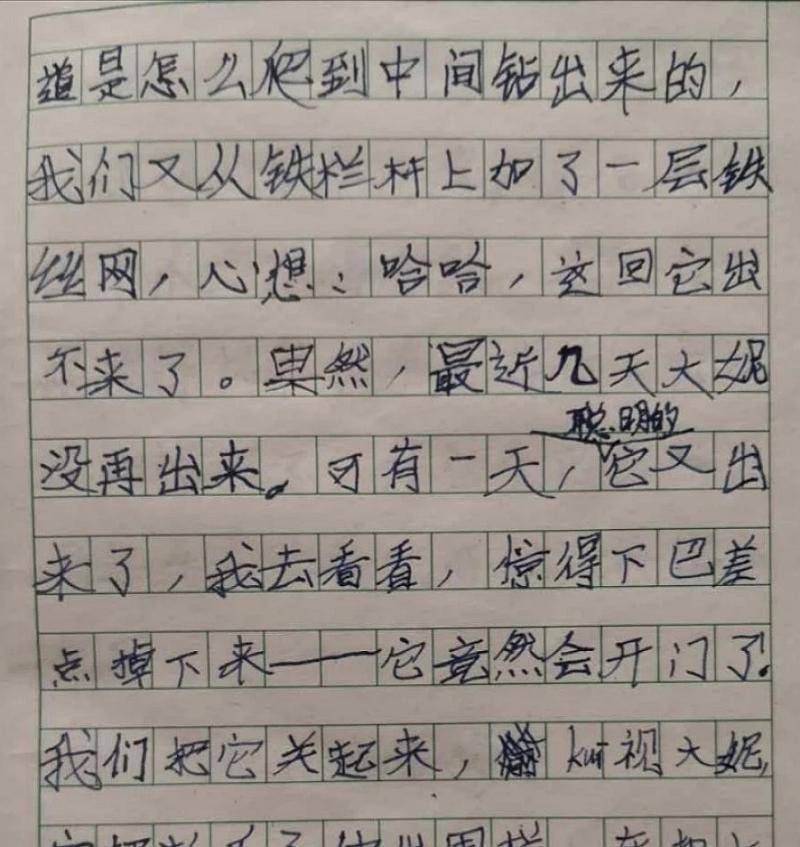 道是怎么爬到中间钻出来的，
我们又从铁栏杆上加了一层铁
丝网，心想：哈哈，这回它出
不来了。果然，最近几天大妮
聪明的
没再出来。可有一天，它又出
来了，我去看看，惊得下巴差
点掉下来——它竟然会开门了。
我们把它关起来，kui视大妮，